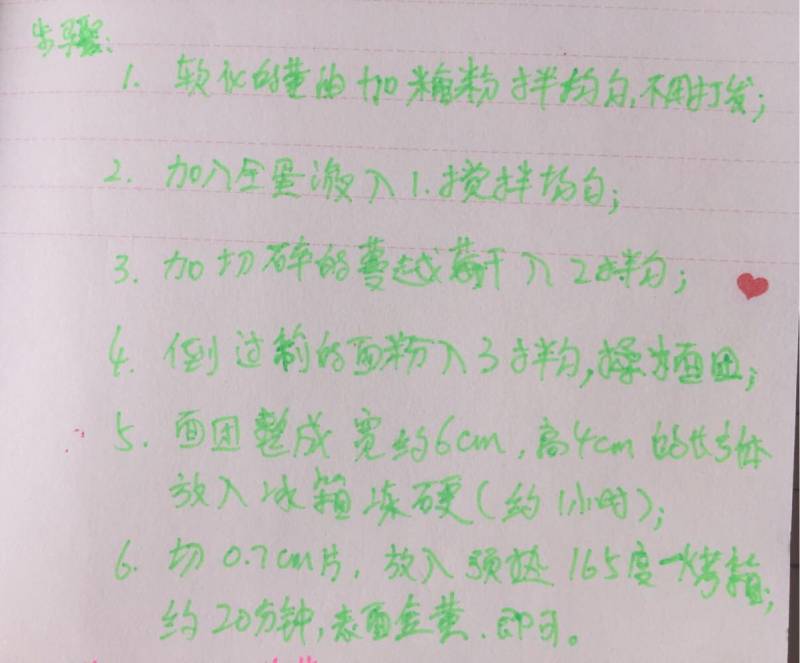 步骤:
1. 软化的黄油加糖粉拌均匀,不用打发;
2. 加入全蛋液入1.搅拌均匀;
3. 加切碎的蔓越莓干入2拌匀;
4. 倒过筛的面粉入3拌匀,揉成面团;
5. 面团整成宽约6cm,高4cm的长方体
放入冰箱冻硬(约1小时);
6. 切0.7cm片,放入预热165度一烤箱;
约20分钟,表面金黄.即可。